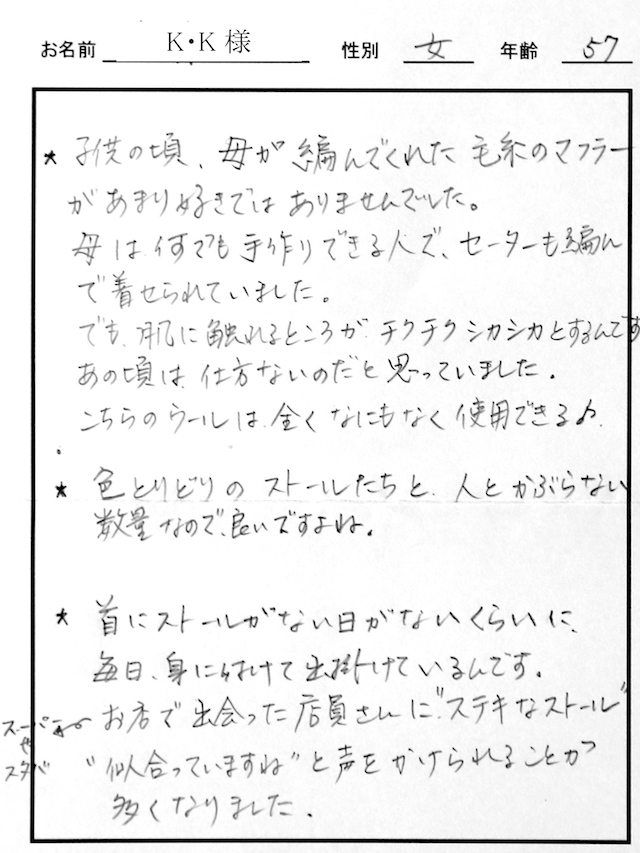 お名前 K・K様 性別 女 年齢 57
★ 子供の頃、母が編んでくれた毛糸のマフラー
があまり好きではありませんでした。
母は何でも手作りできる人で、セーターも編ん
で着せられていました。
でも、肌に触れるところが、チクチクシカシカとするんです
あの頃は、仕方ないのだと思っていました。
こちらのウールは、全くなにもなく使用できる♪
★ 色とりどりのストールたちと、人とかぶらない
数量なので、良いですよね。
★ 首にストールがない日がないくらいに、
毎日、身に付けて出掛けているんです。
お店で出会った店員さんに"ステキなストール"
スーパー
や
スタバ
"似合っていますね"と声をかけられることが
多くなりました。